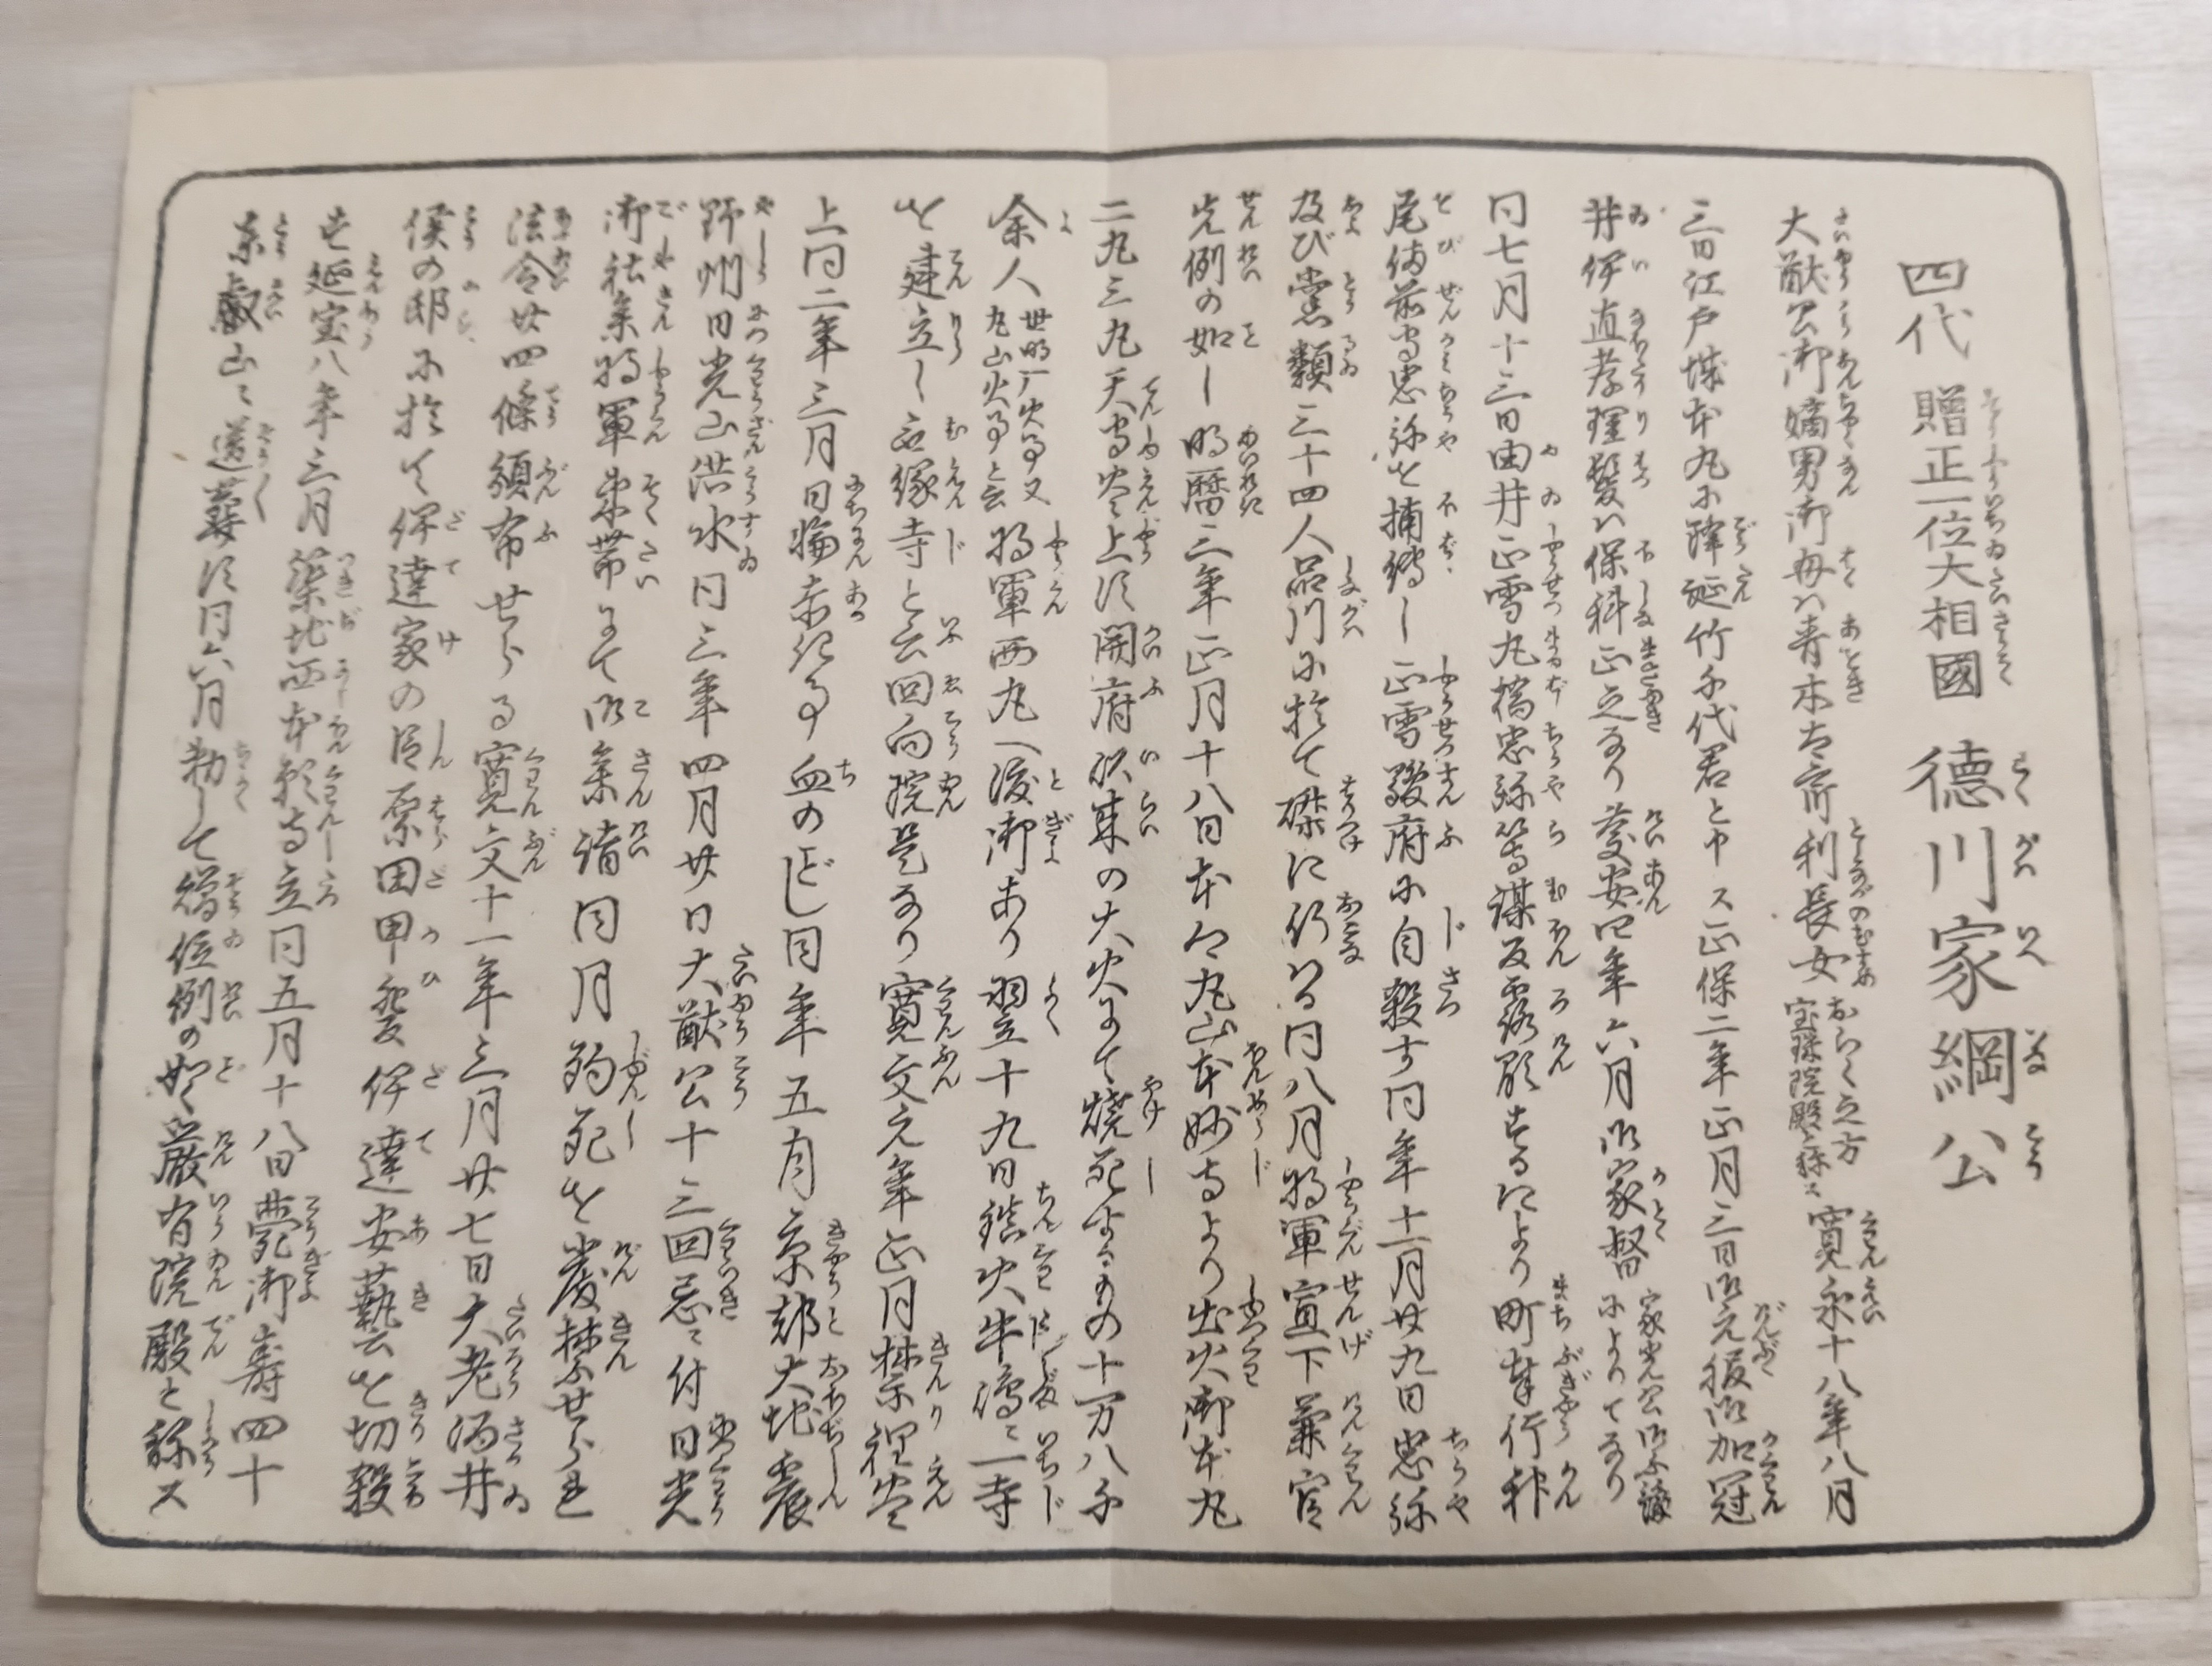 四代 贈正一位大相國 德川家綱公
大猷公御嫡男御母ハ青木 利長女 おらく之方 宝珠院殿ト称ス 寛永十八年八月
三日江戸城本丸に降誕竹千代君と申ス正保二年正月三日御元服御加冠
井伊直孝理髪ハ保科正之なり慶安四年六月御家督 家光公 によりてなり
同七月十三日由井正雪丸橋忠弥等謀反露顕するにより町奉行神
尾備前守忠弥を捕縛し正雪駿府に自殺す同年十一月廿九日忠弥
及び党類三十四人品川に於て磔に行はる同八月将軍宣下兼官
先例の如し明暦三年正月十八日本郷丸山本妙寺より出火御本丸
二丸三丸天守炎上す開府以来の大火にて焼死するもの十万八千
余人 世明暦火事又丸山火事と云 将軍西丸へ渡御あり翌十九日鎮火牛嶋ニ一寺
を建立し無縁寺と云回向院是なり寛文元年正月禁裡炎
上同二年三月日輪赤紀る事血のごとし同年五月京都大地震
野州日光山洪水同三年四月廿日大猷公十三回忌ニ付日光
御社参将軍束帯にて御参詣同月殉死を厳禁せられ
法令廿四條頒布せらる寛文十一年三月廿七日大老酒井
侯の邸に於て伊達家の臣原田甲斐伊達安藝を切殺
す延宝八年三月築地西本願寺立同五月十八日薨御寿四十
東叡山ニ送葬す同六月勅して贈位例の如く厳有院殿と称ス